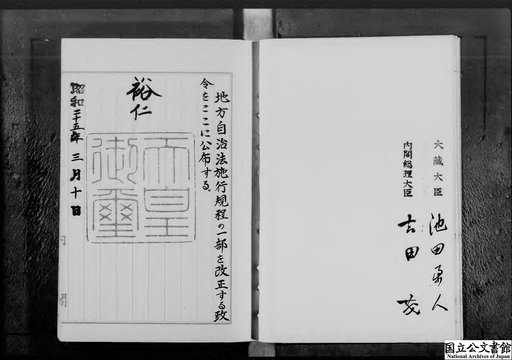 大蔵大臣 池田勇人
内閣総理大臣 吉田茂
地方自治法施行規程の一部を改正する政
令をここに公布する。
裕仁
天皇御璽
昭和二十五年三月十日
内閣
国立公文書館
National Archives of Japan